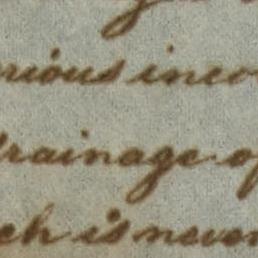 rious inco
drainage of
ch is never